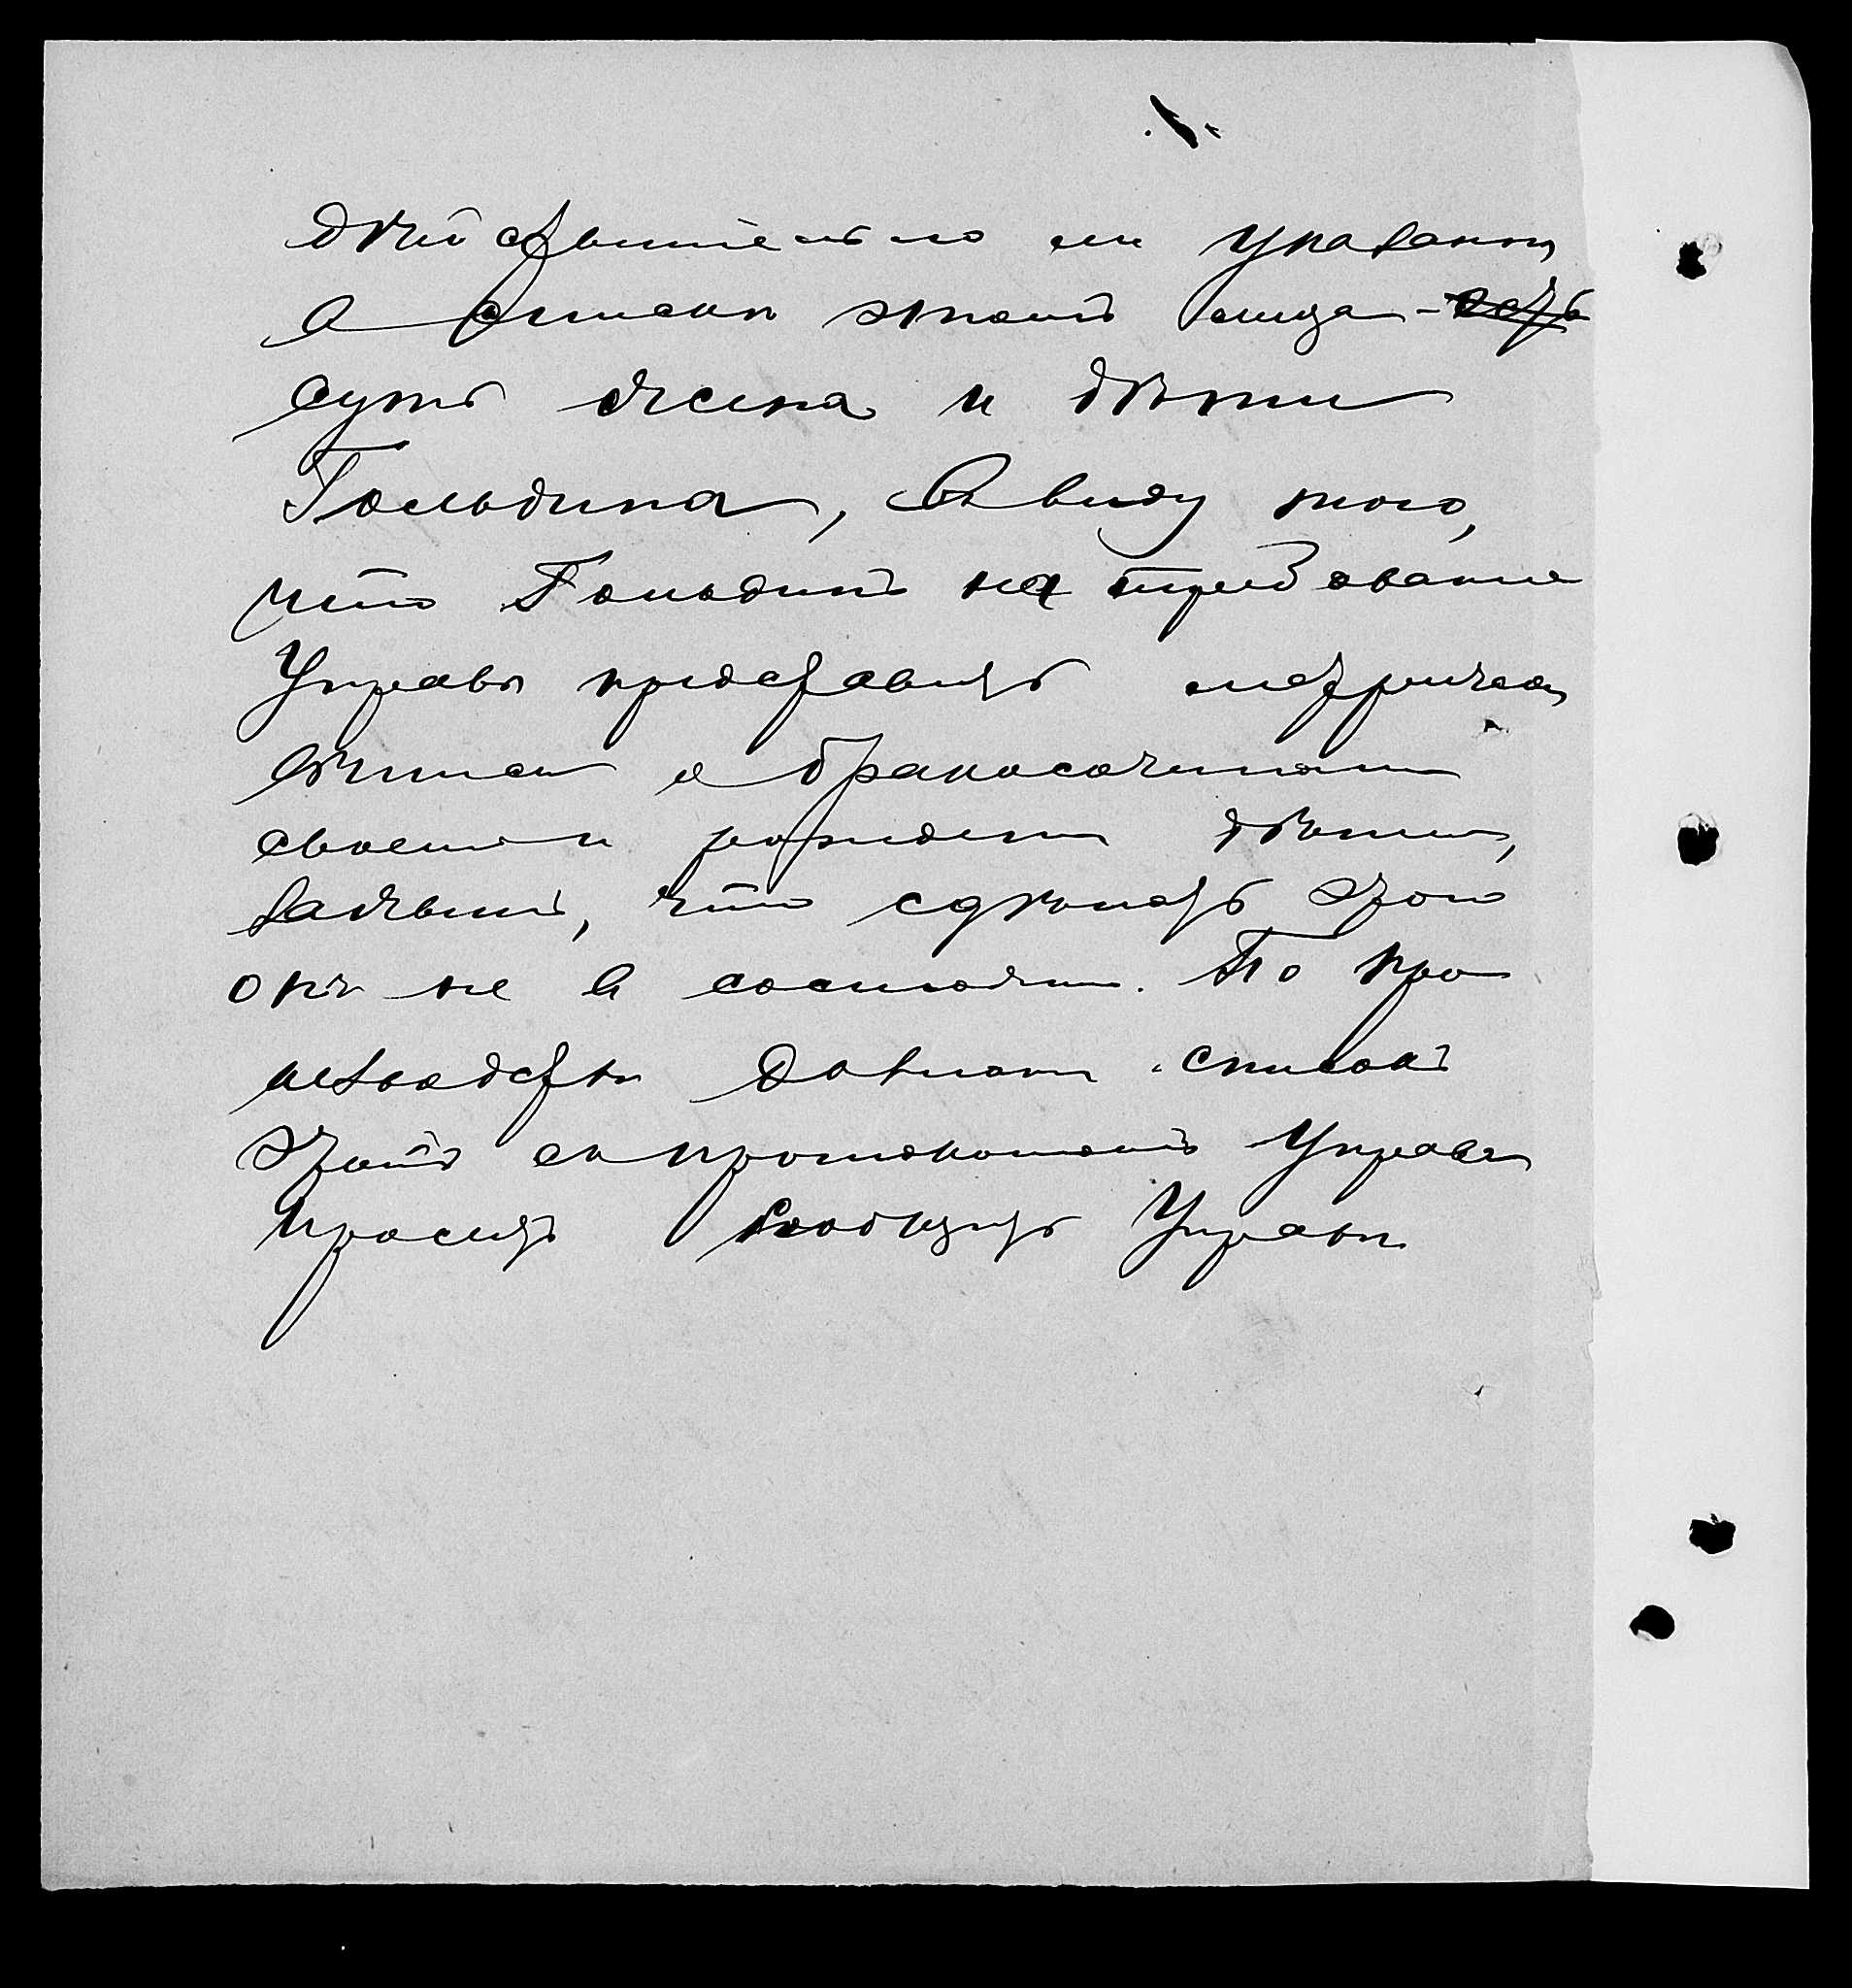 дѣйствительно ли указанн
в списки этомъ лица - есть
суть жена и дѣти
Гольдина, Въ виду того,
что Гольдинъ на требованіе
Управы представить метрическ
выписи о бракосочетаніи
своемъ и рожденіи дѣтей,
заявилъ, что сдѣлать этого
онъ не въ состояніи. По про
изводству дознанія списокъ
этотъ съ протоколомъ Управа
проситъ сообщить Управѣ